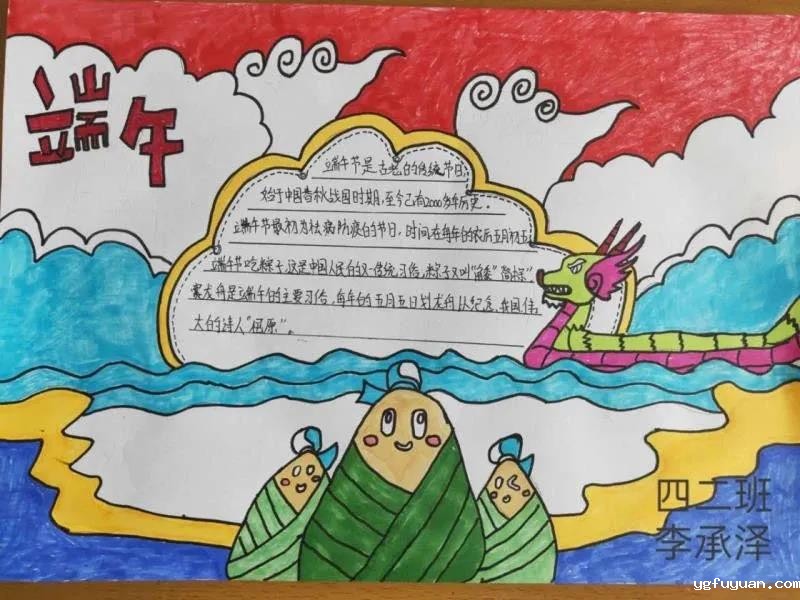 端午
端午节是古老的传统节日
始于中国春秋战国时期,至今已有2000多年历史。
端午节最初为祛病防疫的节日,时间在每年的农历五月初五
端午节吃粽子,这是中国人民的又一传统习俗,粽子又叫"角黍""筒粽"。
赛龙舟是端午的主要习俗,每年的五月五日划龙舟以纪念,我国伟
大的诗人"屈原"。
四二班
李承泽
ygfuyuan.com